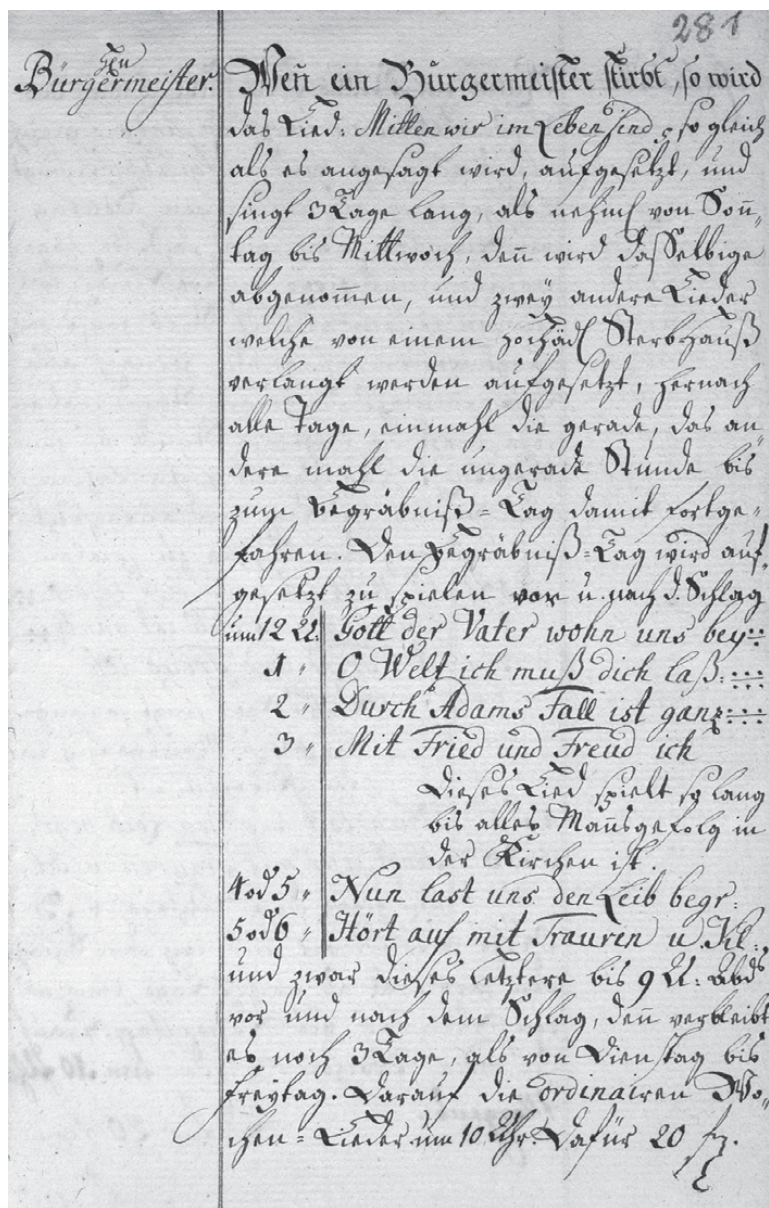 281
Hn
Bürgermeister.
Wen̄ ein Bürgermeister stirbt, so wird
das Lied: Mitten wir im Leben sind, so gleich
als es angesagt wird, aufgesetzt, und
singt 3 Tage lang, als nehml von Son̄„
tag bis Mittwoch, den̄ wird dasselbige
abgenom̄en, und zwey andere Lieder
welche von einem HochAdl Sterbhauß
verlangt werden aufgesetzt, hernach
alle Tage, einmahl die gerade, das an„
dere mahl die ungerade Stunde bis
zum Begräbniß=Tag damit fortge„
fahren. Den Begräbniß=Tag wird auf„
gesetzt zu spielen vor u. nach d. Schlag
um 12 U: Gott der Vater wohn uns bey
1 „ O Welt ich muß dich laß:
2 „ Durch Adams Fall ist ganz
3 „ Mit Fried und Freud ich
dieses Lied spielt so lang
bis alles Man̄sgefolg in
der Kirchen ist.
4 od 5 „ Nun last uns den Leib begr:
5 od 6 „ Hört auf mit Trauren u. Kl:
und zwar dieses letztere bis 9 U: Abds
vor und nach dem Schlag, den̄ verbleibt
es noch 3 Tage, als von Dienstag bis
Freytag. Darauf die ordinairen Wo„
chen=Lieder um 10 Uhr. Dafür 20